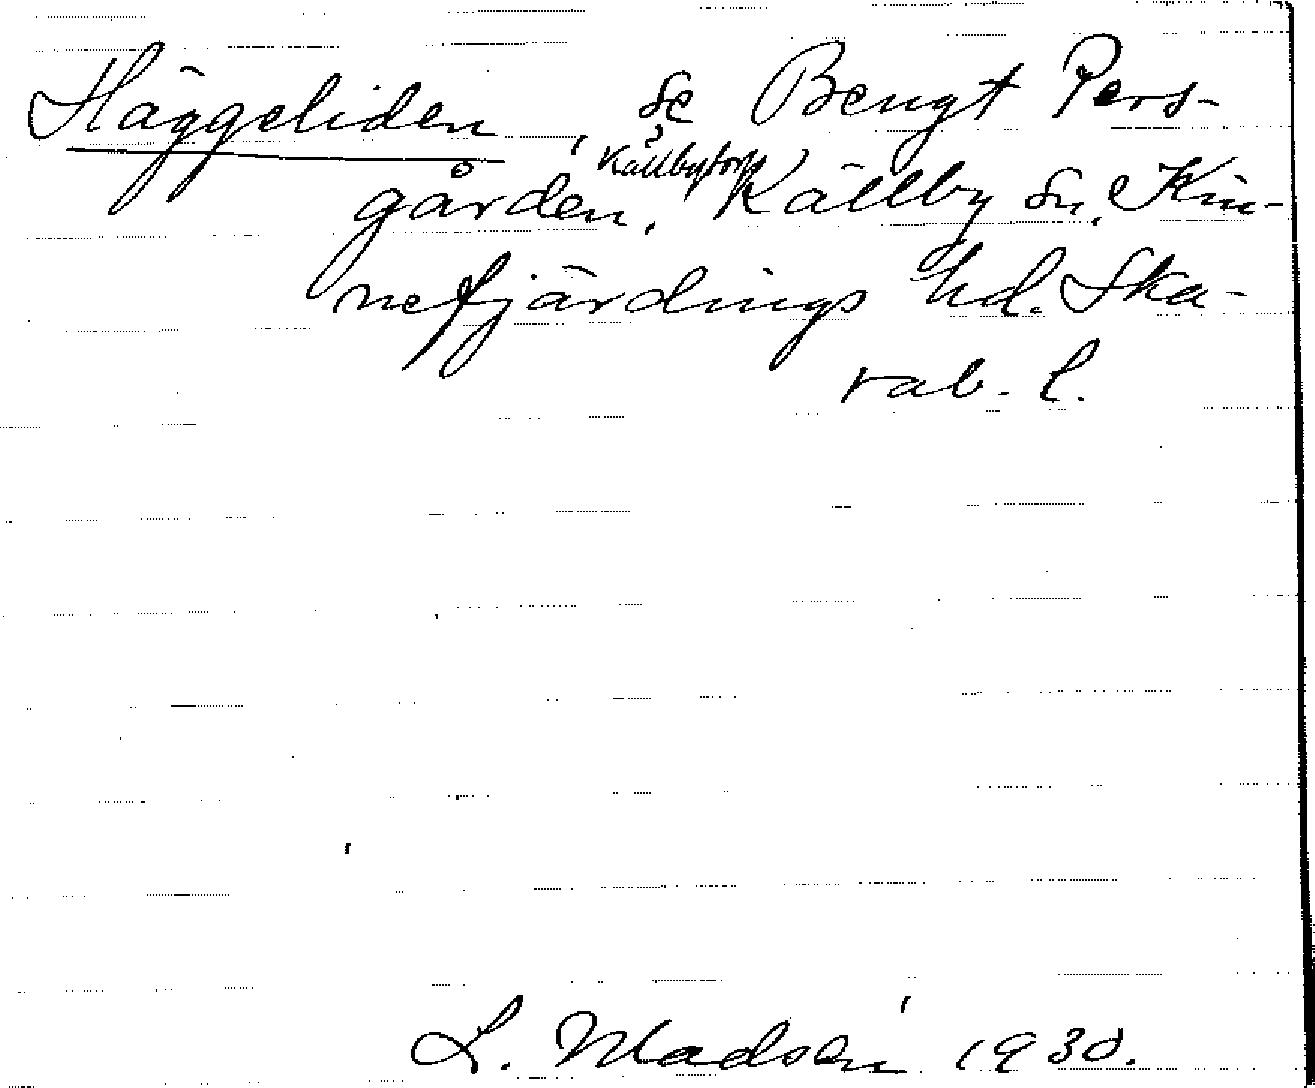 Häggeliden, se Bengt Pers-
Källbytorp,
gården, Källby sn, Kin-
nefjärdings hd. Ska-
rab. l.
L. Madsén 1930.